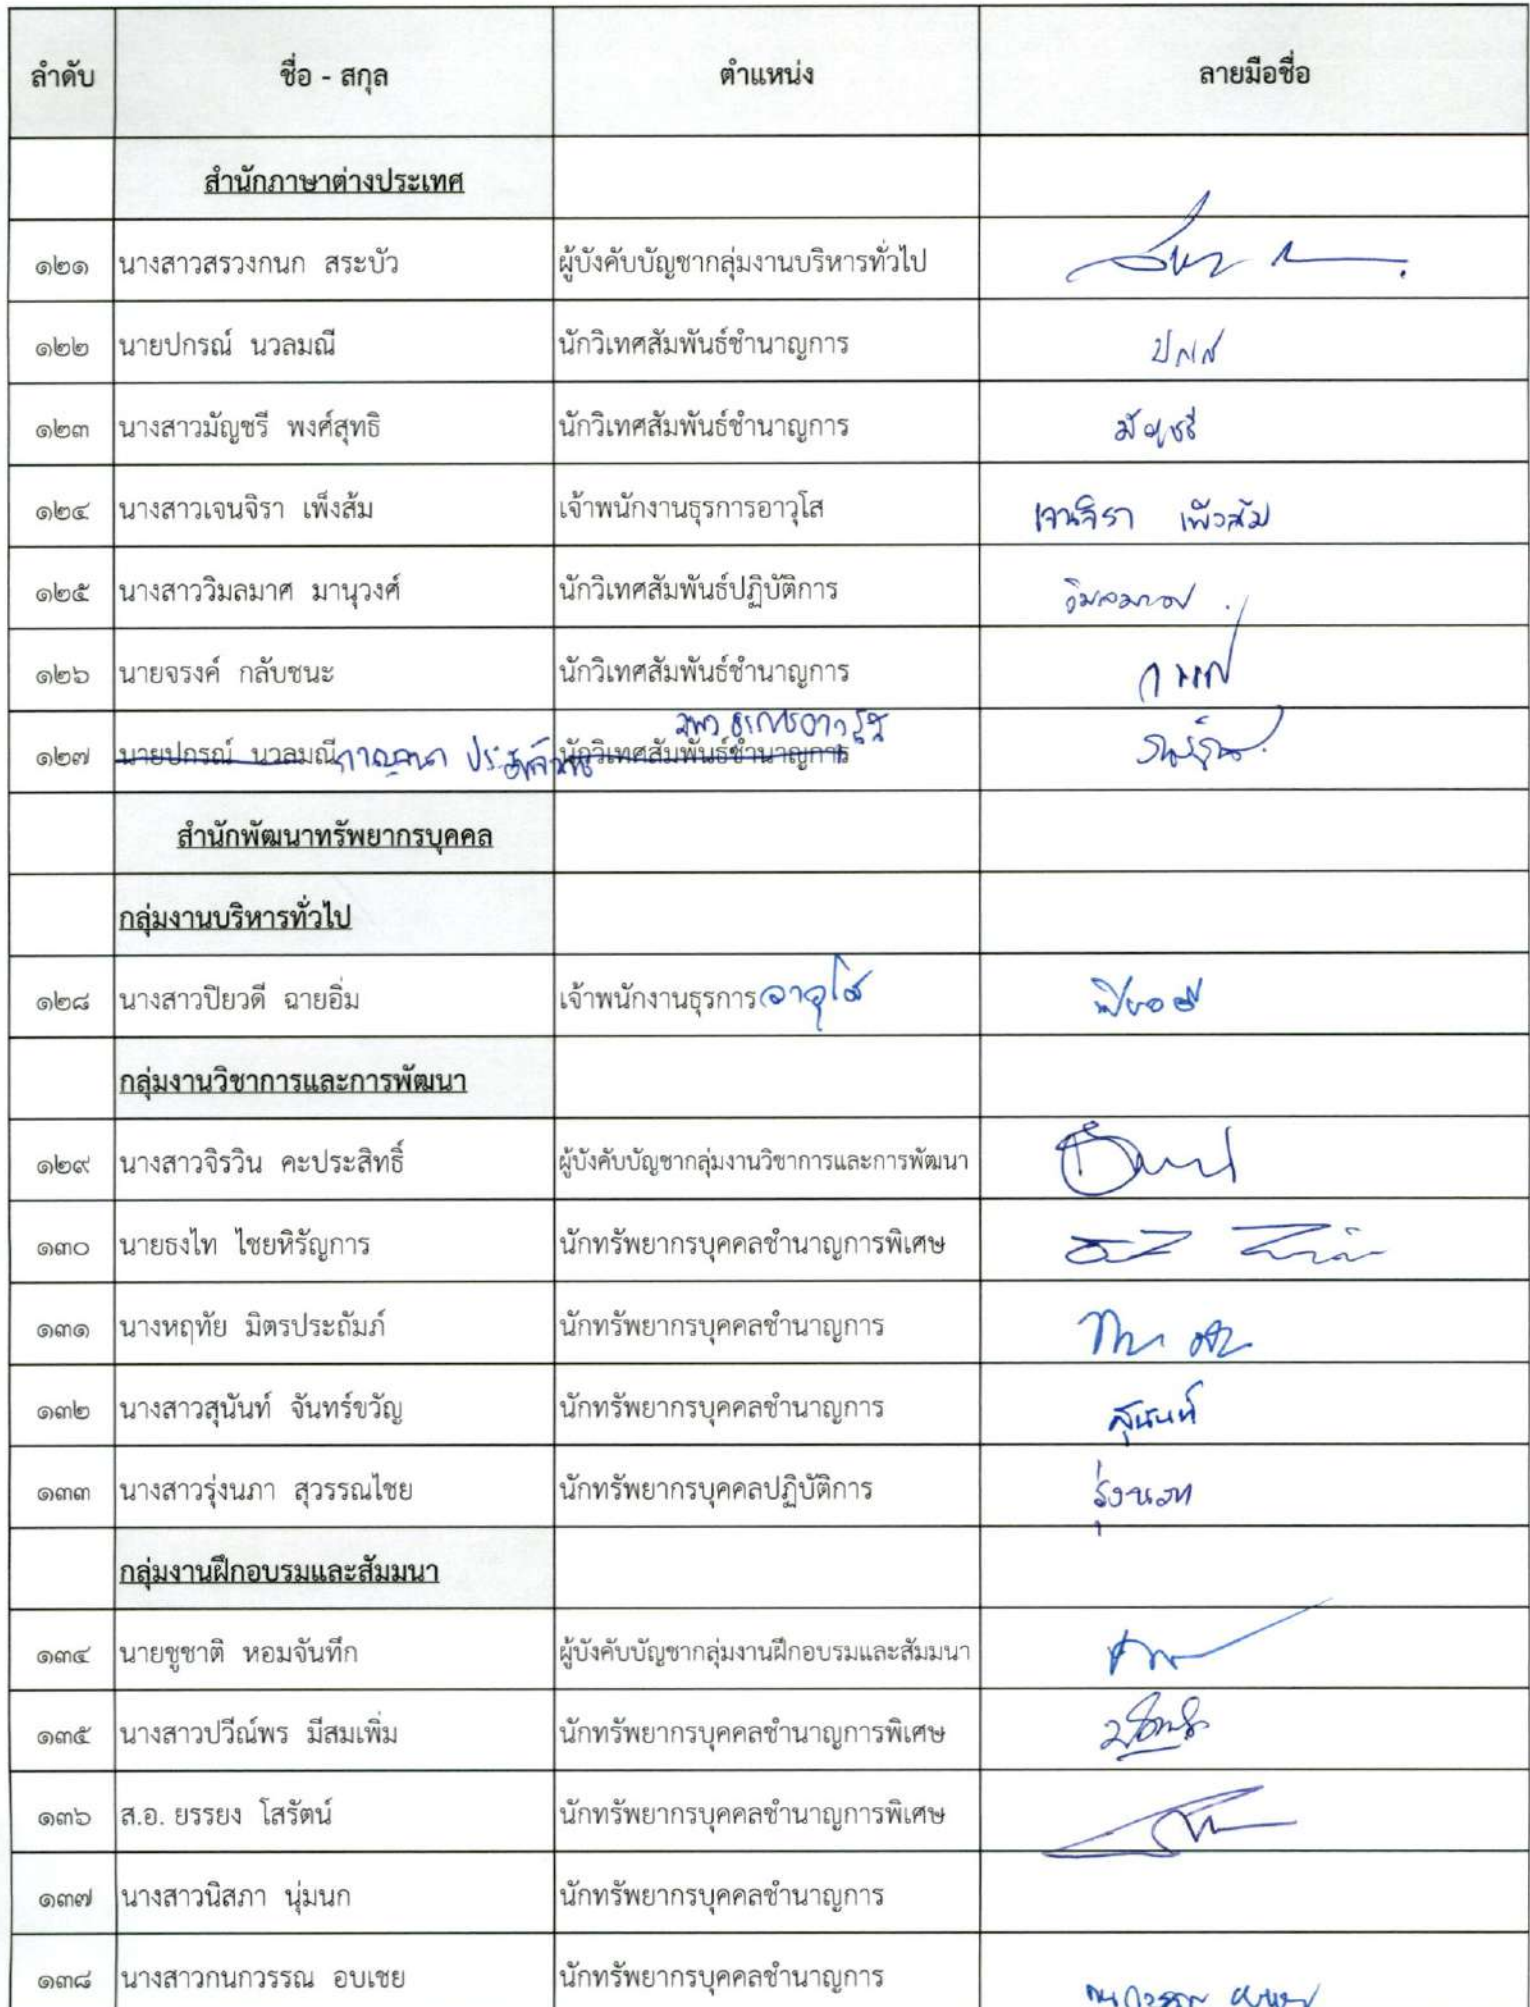 ลำดับ ชื่อ - สกุล ตำแหน่ง ลายมือชื่อ
สำนักภาษาต่างประเทศ
๑๒๑ นางสาวสรวงกนก สระบัว ผู้บังคับบัญชากลุ่มงานบริหารทั่วไป
๑๒๒ นายปกรณ์ นวลมณี นักวิเทศสัมพันธ์ชำนาญการ
๑๒๓ นางสาวมัญชรี พงศ์สุทธิ นักวิเทศสัมพันธ์ชำนาญการ มัญชรี
๑๒๔ นางสาวเจนจิรา เพ็งส้ม เจ้าพนักงานธุรการอาวุโส เจนจิรา เพ็งส้ม
๑๒๕ นางสาววิมลมาศ มานุวงศ์ นักวิเทศสัมพันธ์ปฏิบัติการ วิมลมาศ
๑๒๖ นายจรงค์ กลับชนะ นักวิเทศสัมพันธ์ชำนาญการ
๑๒๗ นายปกรณ์ นวลมณี กาญจนา นักวิเทศสัมพันธ์ชำนาญการ
สำนักพัฒนาทรัพยากรบุคคล
กลุ่มงานบริหารทั่วไป
๑๒๘ นางสาวปิยวดี ฉายอิ่ม เจ้าพนักงานธุรการอาวุโส ปิยวดี
กลุ่มงานวิชาการและการพัฒนา
๑๒๙ นางสาวจิรวิน คะประสิทธิ์ ผู้บังคับบัญชากลุ่มงานวิชาการและการพัฒนา
๑๓๐ นายธงไท ไชยหิรัญการ นักทรัพยากรบุคคลชำนาญการพิเศษ
๑๓๑ นางหฤทัย มิตรประถัมภ์ นักทรัพยากรบุคคลชำนาญการ
๑๓๒ นางสาวสุนันท์ จันทร์ขวัญ นักทรัพยากรบุคคลชำนาญการ สุนันท์
๑๓๓ นางสาวรุ่งนภา สุวรรณไชย นักทรัพยากรบุคคลปฏิบัติการ รุ่งนภา
กลุ่มงานฝึกอบรมและสัมมนา
๑๓๔ นายชูชาติ หอมจันทึก ผู้บังคับบัญชากลุ่มงานฝึกอบรมและสัมมนา
๑๓๕ นางสาวปวีณ์พร มีสมเพิ่ม นักทรัพยากรบุคคลชำนาญการพิเศษ
๑๓๖ ส.อ. ยรรยง โสรัตน์ นักทรัพยากรบุคคลชำนาญการพิเศษ
๑๓๗ นางสาวนิสภา นุ่มนก นักทรัพยากรบุคคลชำนาญการ
๑๓๘ นางสาวกนกวรรณ อบเชย นักทรัพยากรบุคคลชำนาญการ